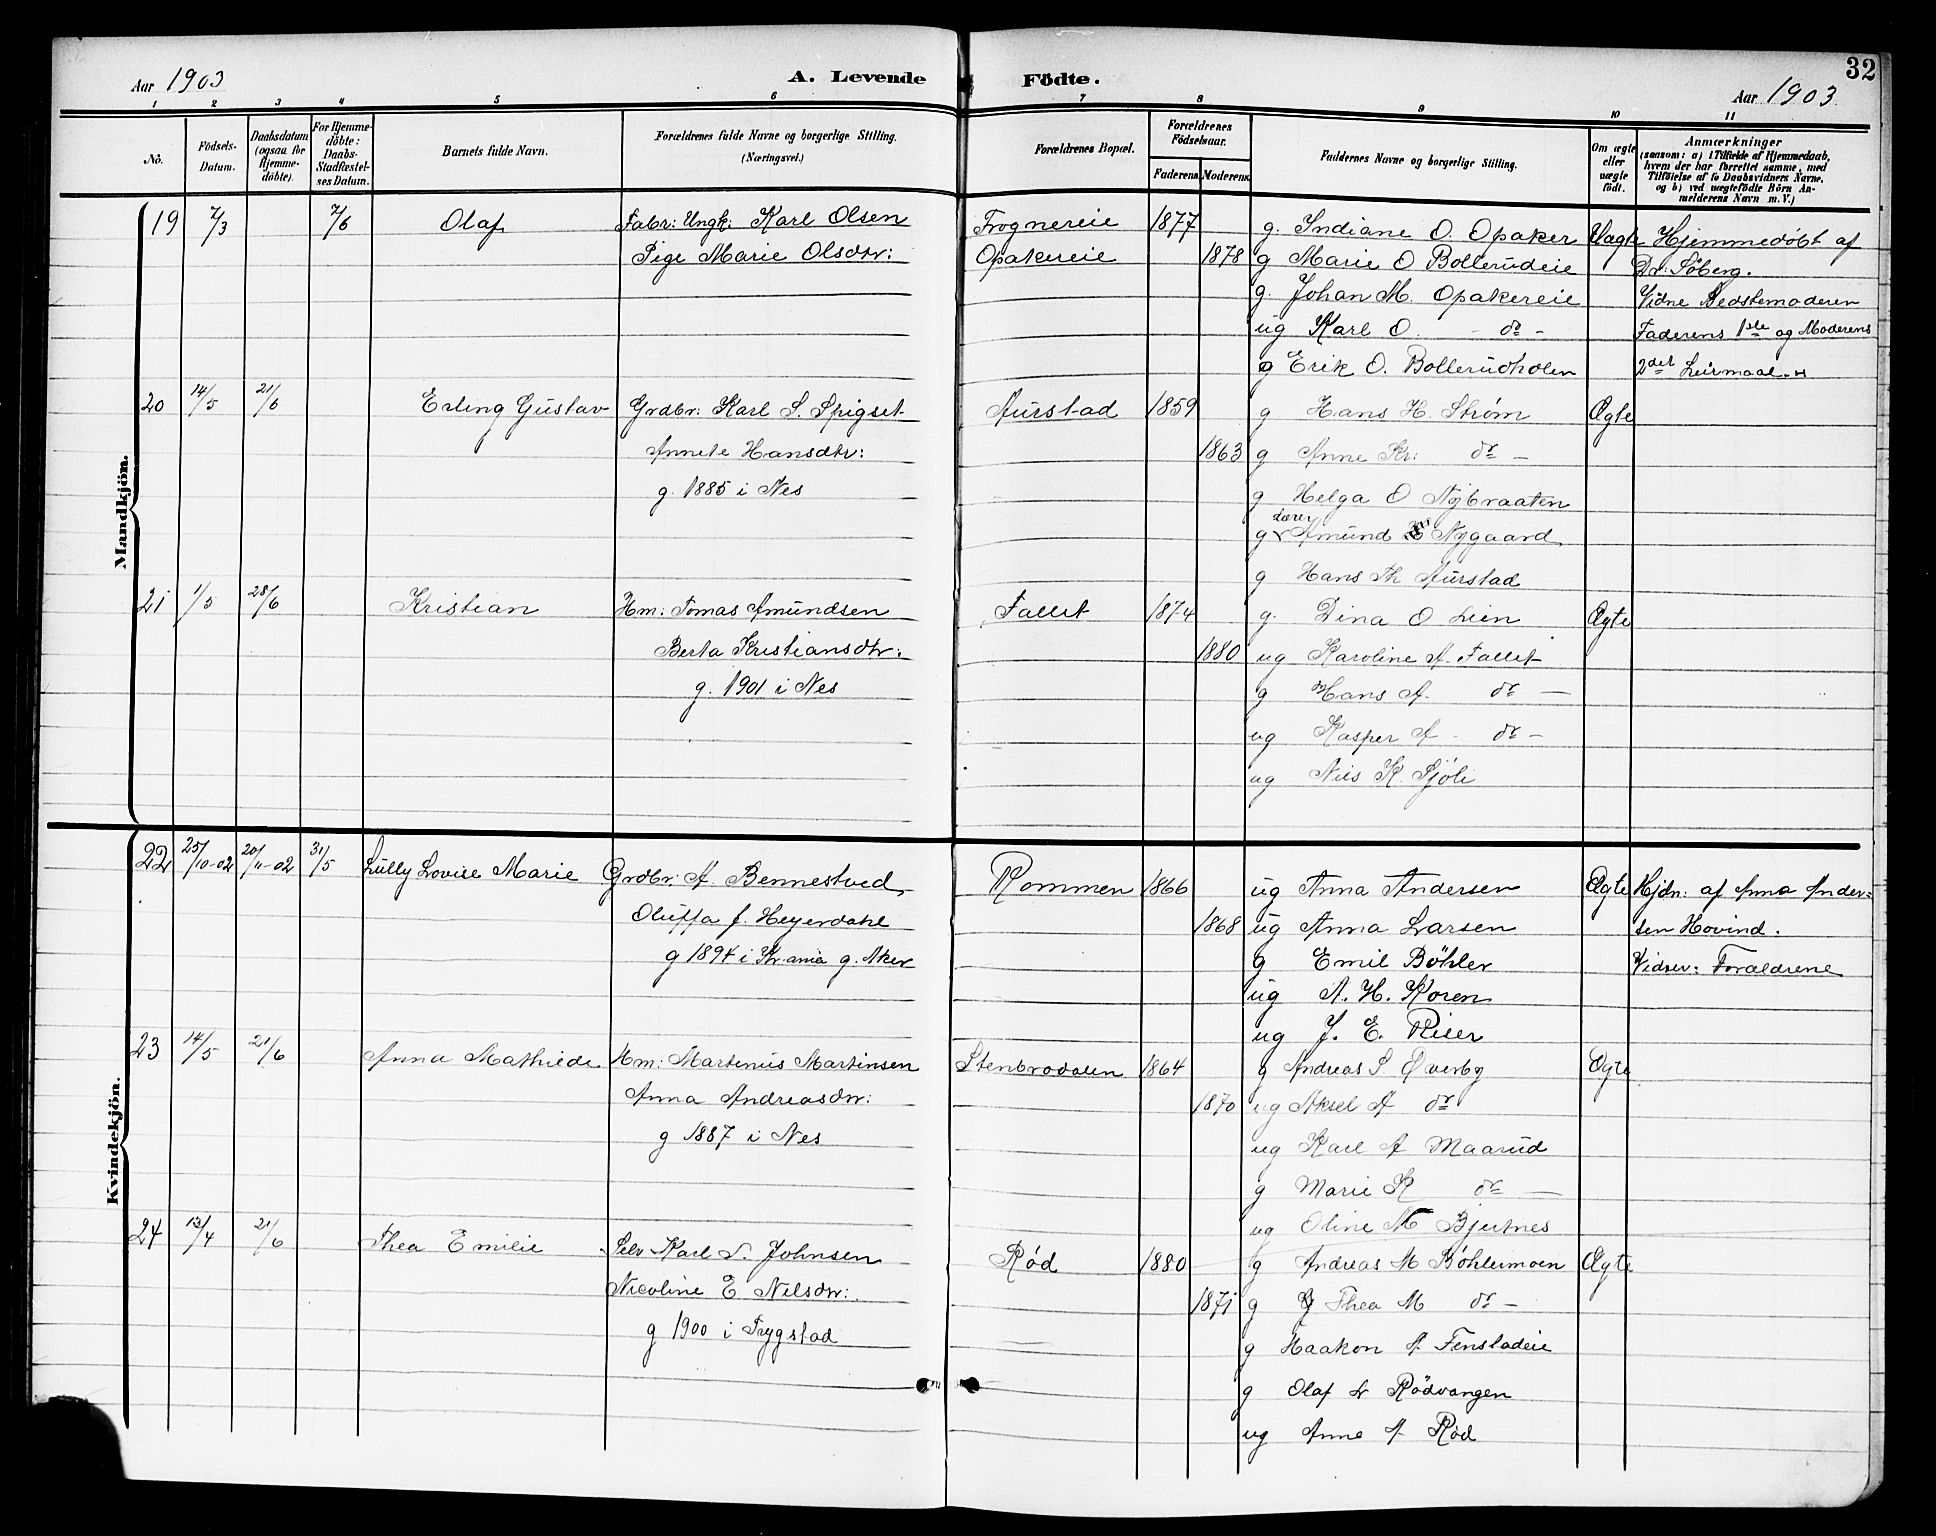 32
Aar 1903 A. Levende Födte. Aar 1903
1 2 3 4 5 6 7 8 9 10 11
No.
Födsels-Datum.
Daabsdatum (ogsaa for Hjemme-döbte).
For Hjemme-döbte: Daabs-Stadfæstel-ses Datum.
Barnets fulde Navn.
Forældrenes fulde Navne og borgerlige Stilling. (Næringsvei.)
Forældrenes Bopæl.
Forældrenes Födselsaar.
Faderens. Moderens.
Faddernes Navne og borgerlige Stilling.
Om ægte eller uægte födt.
Anmærkninger
(saasom: a) i Tilfælde af Hjemmedaab,
hvem der har forrettet samme, med
Tilföielse af to Daabsvidners Navne,
og b) ved uægtefödte Börn An-
melderens Navn m. V.)
Mandkjön.
19 7/3 7/6 Olaf Fabr: Ungk: Karl Olsen Frognereie 1877 g. Indiane O. Opaker Uagte Hjemmedøbt af
Pige Marie Olsdtr: Opakereie 1878 g Marie O Bollerudeie Dr: Søberg.
g. Johan M. Opakereie Vidne Bedstemoderen
ug Karl O. - do - Faderens 1ste og Moderens
g Erik O. Bollerudholen 2det Leirmaal.
20 14/5 21/6 Erling Gustav Grdbr: Karl S. Spigset Aurstad 1859 g Hans H. Strøm Ægte
Annete Hansdtr: 1863 g Anne Kr: do -
g. 1885 i Nes g Helga O Nybraaten
lærer
g Amund Nygaard
g Hans Th Aurstad
21 1/5 28/6 Kristian Hm: Tomas Amundsen Fallet 1874 g. Dina O Lien Ægte
Berta Kristiansdtr: 1880 ug Karoline A. Fallet
g. 1901 i Nes g Hans A. do —
ug Kasper A - do -
ug Nils K. Sjøli
Kvindekjön.
22 25/10-02 20/11-02 31/5 Lully Lovise Marie Grdbr: A. Bennestved Rommen 1866 ug Anna Andersen Ægte Hjdn: af Anna Ander=
Oluffa f. Heyerdahl 1868 ug Anna Larsen sen Hovind.
g 1894 i Kr-ania g. Aker g Emil Bøhler Vidner: Forældrene
ug A. H. Koren
ug J. E. Riser
23 14/5 21/6 Anna Mathilde Hm: Martenius Martinsen Stenbrodalen 1864 g Andreas S Øverby Ægte
Anna Andreasdtr: 1870 ug Aksel A do
g 1887 i Nes ug Karl A Maarud
g Marie K do —
ug Oline M Bjertnes
24 13/4 21/6 Thea Emilie Selv Karl L. Johnsen Rød 1880 g Andreas M Bøhlermoen Ægte
Nicoline E Nilsdtr: 1871 g Thea M do -
g 1900 i Trygstad g Haakon A Fenstadeie
g Olaf L Rødvangen
ug Anne A Rød